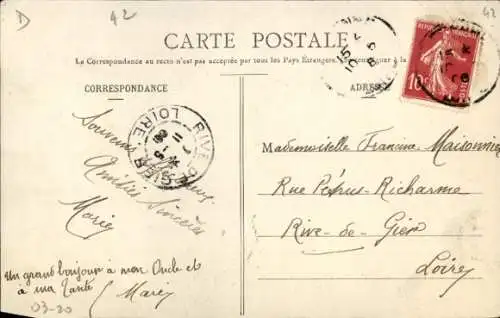 D 42 42
CARTE POSTALE
La Correspondance au recto n'est pas acceptée par tous les Pays Étrangers.
CORRESPONDANCE
ADRESSE
10c
RIVE-DE-GIER
LOIRE
Souvenir
Amitiés Sincères
Marie
Un grand bonjour à mon Oncle et
à ma Tante
Marie
03-20
Mademoiselle Francine Maisonneuve
Rue Pétrus-Richarme
Rive-de-Gier
Loire